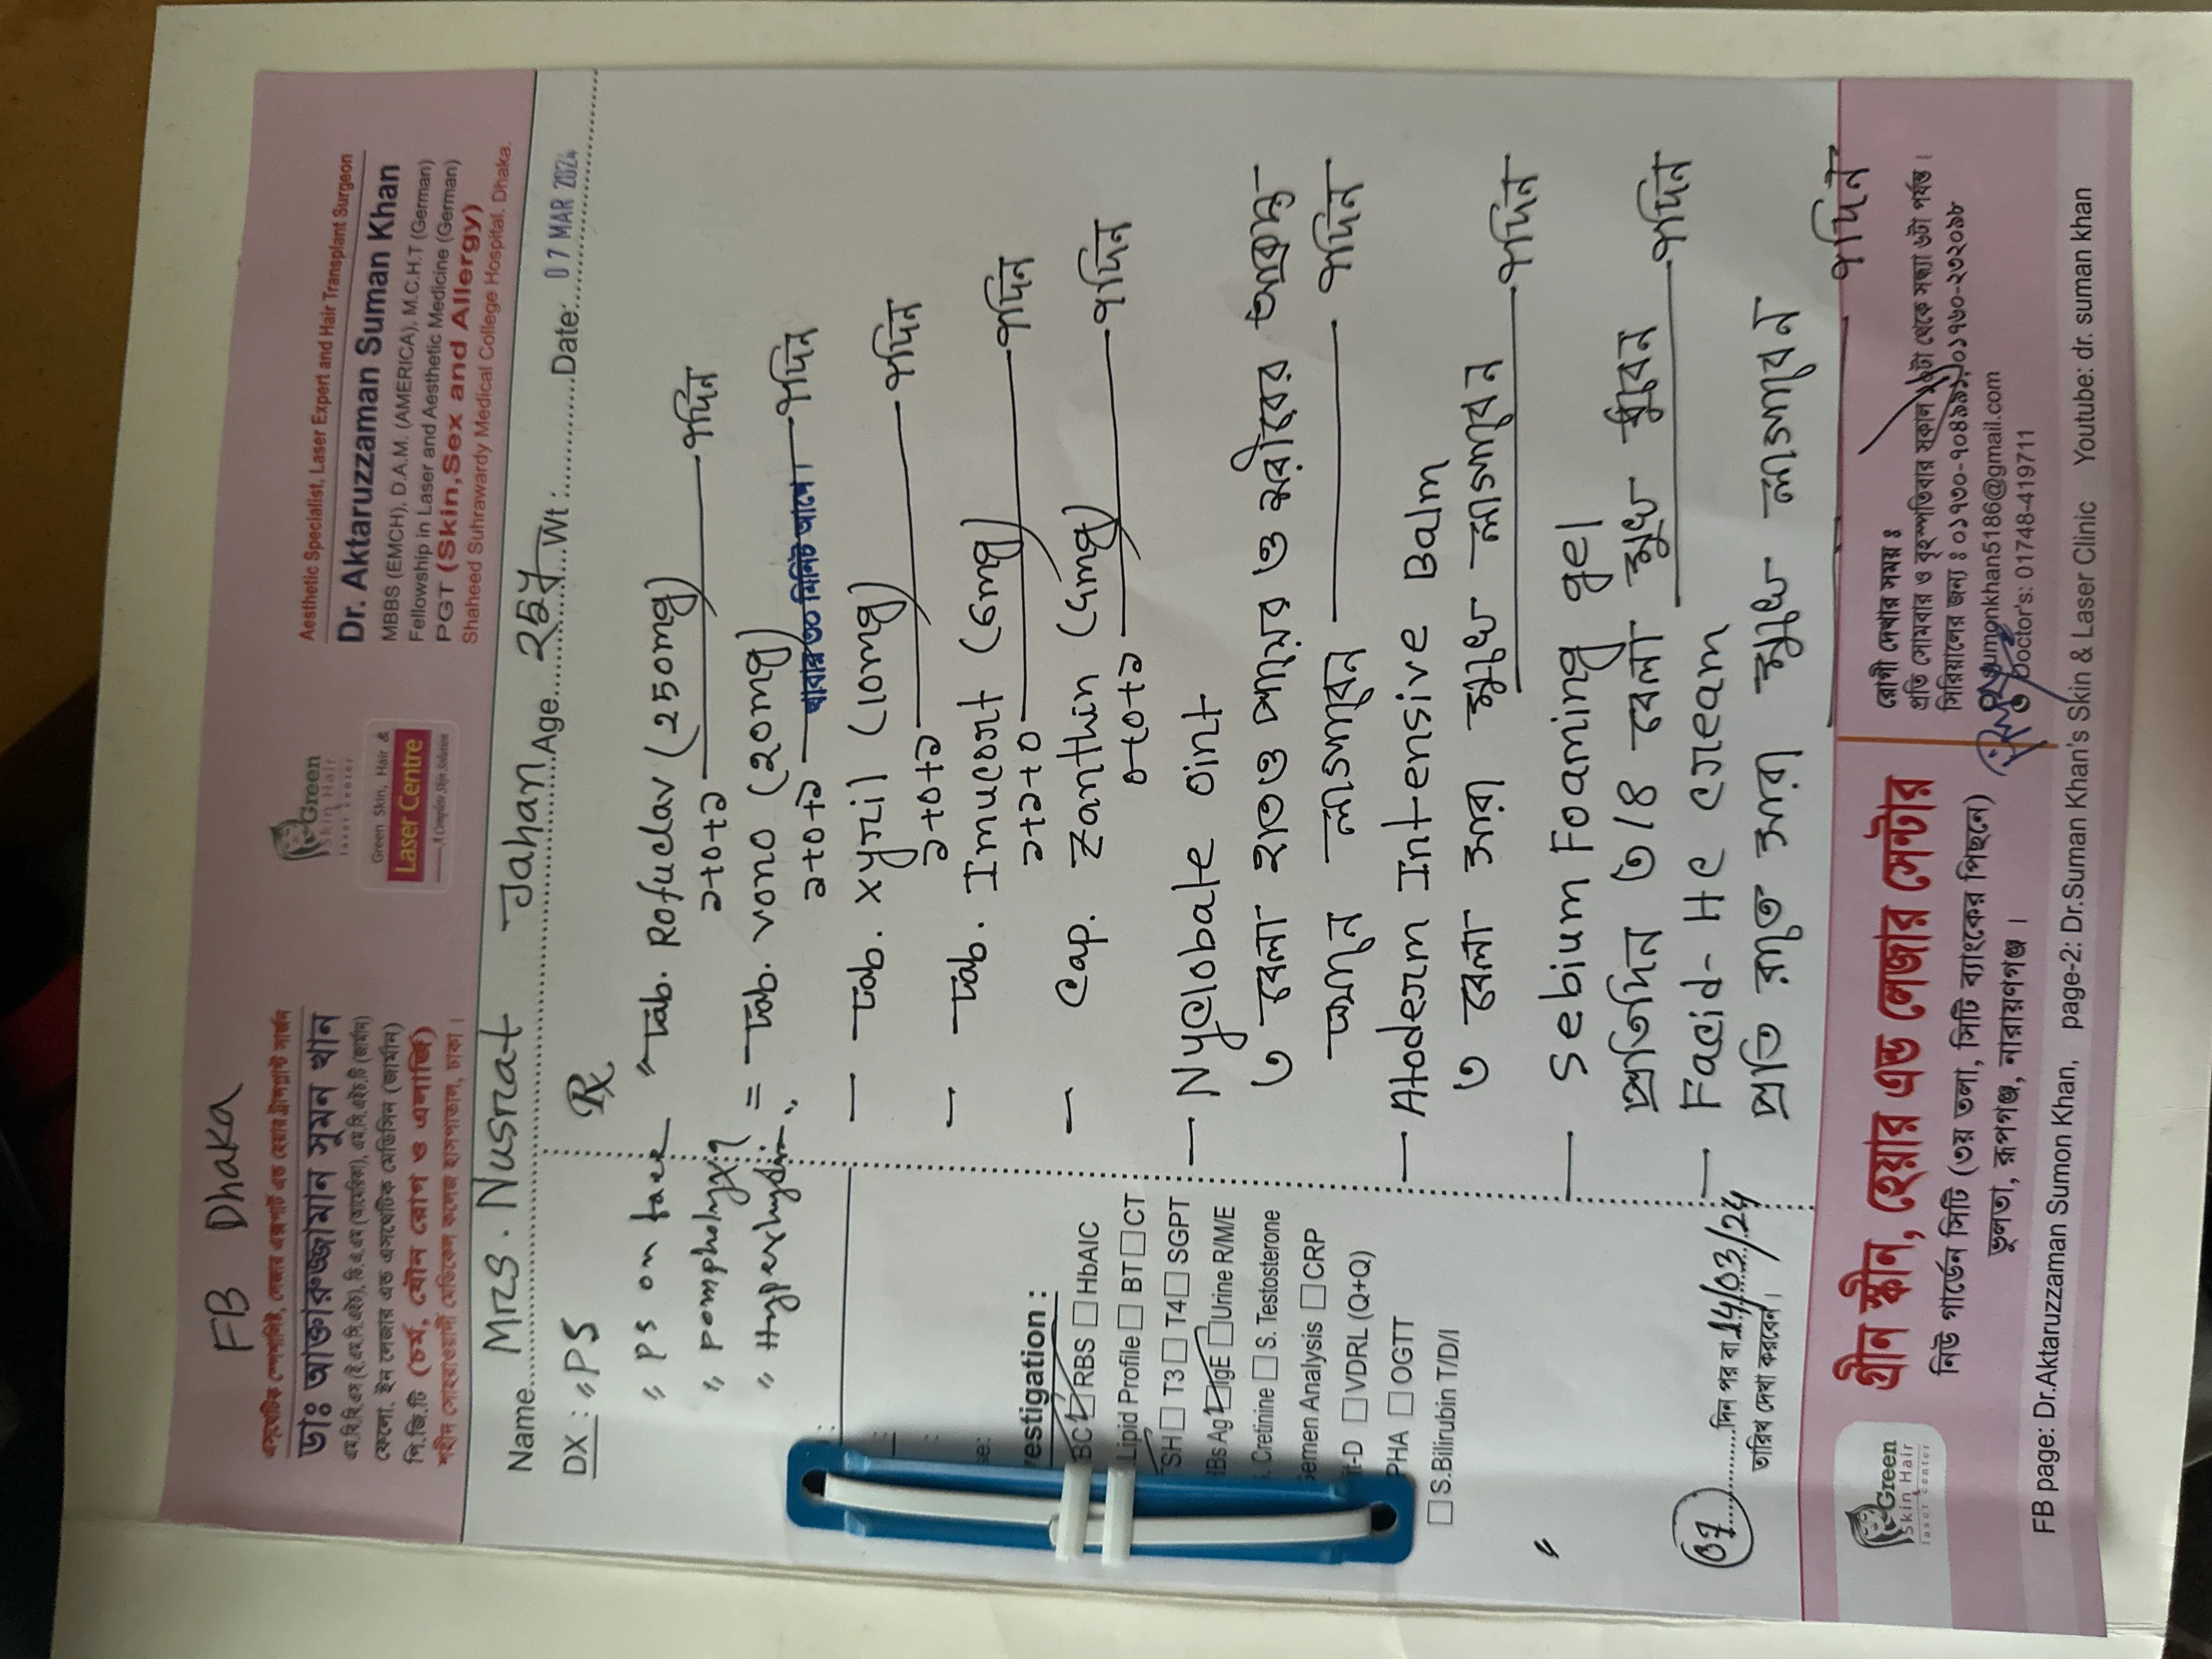 FB Dhaka
এসথেটিক স্পেশালিষ্ট, লেজার এক্সপার্ট এন্ড হেয়ার ট্রান্সপ্লান্ট সার্জন
ডাঃ আক্তারুজ্জামান সুমন খান
এম.বি.বি.এস (ই.এম.সি.এইচ), ডি.এ.এম (আমেরিকা), এম.সি.এইচ.টি (জার্মান)
ফেলো. ইন লেজার এন্ড এসথেটিক মেডিসিন (জার্মান)
পি.জি.টি (চর্ম, যৌন রোগ ও এলার্জি)
শহীদ সোহরাওয়ার্দী মেডিকেল কলেজ হাসপাতাল, ঢাকা।
Green
Skin Hair
laser center
Green Skin, Hair &
Laser Centre
A Complete Skin Solution
Aesthetic Specialist, Laser Expert and Hair Transplant Surgeon
Dr. Aktaruzzaman Suman Khan
MBBS (EMCH), D.A.M. (AMERICA), M.C.H.T (German)
Fellowship in Laser and Aesthetic Medicine (German)
PGT (Skin,Sex and Allergy)
Shaheed Suhrawardy Medical College Hospital. Dhaka.
Name.... Mrs. Nusrat Jahan Age.... 25y Wt :.......Date: 07 MAR 2024
DX : "PS
" PS on face
" pompholyx?
" Hyperhydro.
estigation :
BC RBS HbAIC
Lipid Profile BT CT
SH T3 T4 SGPT
IBs Ag IgE Urine R/M/E
. Cretinine S. Testosterone
emen Analysis CRP
t-D VDRL (Q+Q)
PHA OGTT
S.Bilirubin T/D/I
07 দিন পর বা 14/03/24
তারিখ দেখা করবেন।
Rx
Tab. Rofuclav (250mg)
১+০+১ — ৭দিন
= Tab. Vono (20mg)
১+০+১ — খাবার ৩০ মিনিট আগে। — ৭দিন
— Tab. Xyril (10mg)
১+০+১ — ৭দিন
— Tab. Imucort (6mg)
১+১+০ — ৭দিন
— Cap. Zanthin (4mg)
০+০+১ — ৭দিন
— Nyclobate oint
৩ বেলা হাত পায়ের ও শরীরের আক্রান্ত
স্থানে লাগাবেন — ৭দিন
— Atoderm Intensive Balm
৩ বেলা সারা মুখে লাগাবেন — ৭দিন
— Sebium Foaming gel
প্রতিদিন ৩/৪ বেলা মুখ ধুবেন — ৭দিন
— Facid-HC cream
প্রতি রাতে সারা মুখে লাগাবেন — ৭দিন
Green
Skin Hair
laser center
গ্রীন স্কীন, হেয়ার এন্ড লেজার সেন্টার
নিউ গার্ডেন সিটি (৩য় তলা, সিটি ব্যাংকের পিছনে)
ভুলতা, রূপগঞ্জ, নারায়ণগঞ্জ।
রোগী দেখার সময় ঃ
প্রতি সোমবার ও বৃহস্পতিবার সকাল ১১টা থেকে সন্ধ্যা ৬টা পর্যন্ত।
সিরিয়ালের জন্য ঃ
sumonkhan5186@gmail.com
Doctor's: 01748-419711
FB page: Dr.Aktaruzzaman Sumon Khan, page-2: Dr.Suman Khan's Skin & Laser Clinic Youtube: dr. suman khan